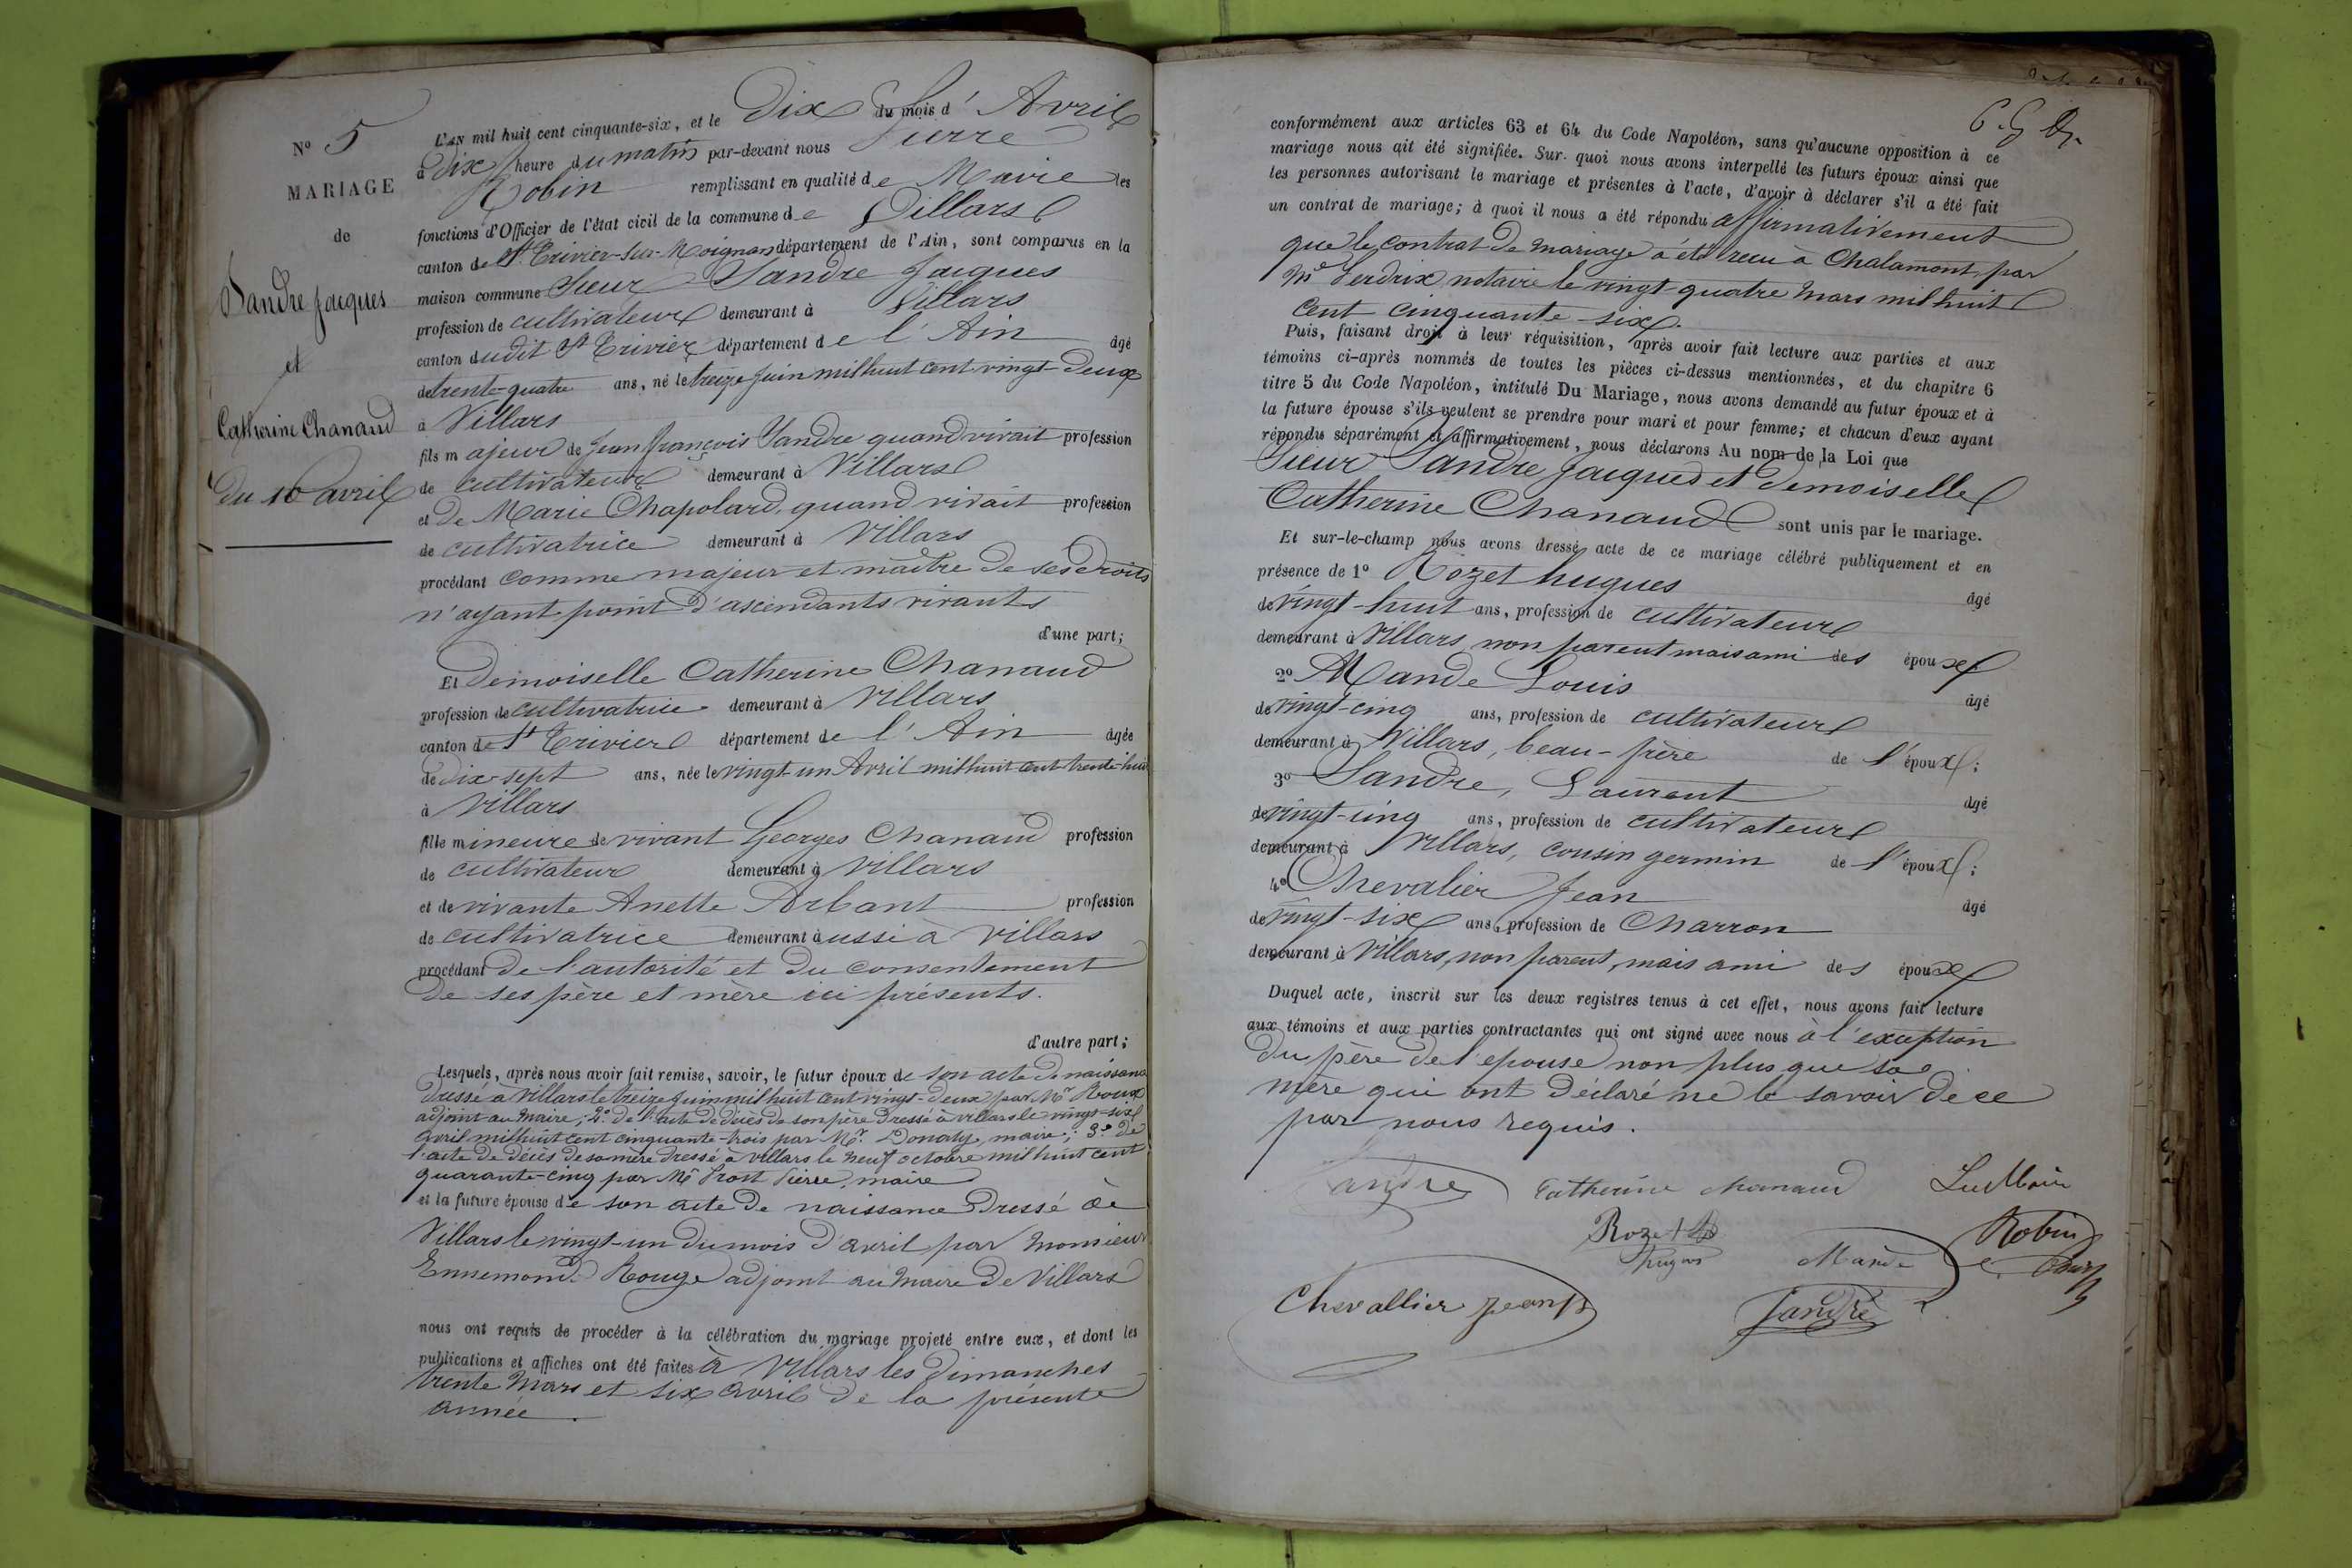 N° 5
MARIAGE
de
Sandre Jacques
et
Catherine Chanaud
Du 10 avril
L'AN mil huit cent cinquante-six, et le Dix du mois d' Avril
à Dix heure du matin par-devant nous Pierre
Robin remplissant en qualité de Maire les
fonctions d'Officier de l'état civil de la commune de Villars
canton de St Trivier-sur-Moignans département de l'Ain, sont comparus en la
maison commune Sieur Sandre Jacques
profession de cultivateur demeurant à Villars
canton dudit St Trivier département de l'Ain âgé
de trente-quatre ans, né le treize Juin mil huit cent vingt-deux
à Villars
fils majeur de Jean françois Sandre quand vivait profession
de cultivateur demeurant à Villars
et de Marie Chapolard, quand vivait profession
de cultivatrice demeurant à Villars
procédant comme majeur et maître de ses droits
n'ayant point d'ascendants vivants
d'une part;
Et Demoiselle Catherine Chanaud
profession de cultivatrice demeurant à Villars
canton de St Trivier département de l'Ain âgée
de dix-sept ans, née le vingt-un Avril mil huit cent trente-huit
à Villars
fille mineure de vivant Georges Chanaud profession
de cultivateur demeurant à Villars
et de vivante Anette Arbant profession
de cultivatrice demeurant aussi à Villars
procédant de l'autorité et du consentement
de ses père et mère ici présents.
d'autre part;
Lesquels, après nous avoir fait remise, savoir, le futur époux de son acte de naissance
dressé à Villars le treize Juin mil huit cent vingt-deux par Mr Roux
adjoint au maire; 2° de l'acte de décès de son père dressé à Villars le vingt-six
avril mil huit cent cinquante-trois par Mr. Donaty, maire; 3° de
l'acte de décès de sa mère dressé à Villars le neuf octobre mil huit cent
quarante-cinq par Mr Prost Pierre, maire
et la future épouse de son acte de naissance dressé à
Villars le vingt-un du mois d'avril par Monsieur
Ennemond Rouge adjoint au maire de Villars
nous ont requis de procéder à la célébration du mariage projeté entre eux, et dont les
publications et affiches ont été faites à Villars les Dimanches
trente Mars et six avril de la présente
année.
conformément aux articles 63 et 64 du Code Napoléon, sans qu'aucune opposition à ce
mariage nous ait été signifiée. Sur quoi nous avons interpellé les futurs époux ainsi que
les personnes autorisant le mariage et présentes à l'acte, d'avoir à déclarer s'il a été fait
un contrat de mariage; à quoi il nous a été répondu affirmativement
que le contrat de mariage a été recu à Chalamont par
Me Perdrix notaire le vingt quatre Mars mil huit
cent cinquante-six.
Puis, faisant droit à leur réquisition, après avoir fait lecture aux parties et aux
témoins ci-après nommés de toutes les pièces ci-dessus mentionnées, et du chapitre 6
titre 5 du Code Napoléon, intitulé Du Mariage, nous avons demandé au futur époux et à
la future épouse s'ils veulent se prendre pour mari et pour femme; et chacun d'eux ayant
répondu séparément et affirmativement, nous déclarons Au nom de la Loi que
Sieur Sandre Jacques et Demoiselle
Catherine Chanaud sont unis par le mariage.
Et sur-le-champ nous avons dressé acte de ce mariage célébré publiquement et en
présence de 1° Rozet hugues âgé
de vingt-huit ans, profession de cultivateur
demeurant à Villars non parent mais ami des époux
2° Mande Louis âgé
de vingt-cinq ans, profession de cultivateur
demeurant à Villars, beau-frère de l'époux;
3° Sandre, Laurent âgé
de vingt-cinq ans, profession de cultivateur
demeurant à Villars, cousin germin de l'époux;
4° Chevalier Jean âgé
de vingt-six ans, profession de Charron
demeurant à Villars, non parent, mais ami des époux
Duquel acte, inscrit sur les deux registres tenus à cet effet, nous avons fait lecture
aux témoins et aux parties contractantes qui ont signé avec nous à l'exception
du père de l'épouse non plus que sa
mère qui ont déclaré ne le savoir de ce
par nous requis.
Sandre Catherine chanaud Le Maire
Rozet hugues Mande Robin
Chevallier Jean Sandre